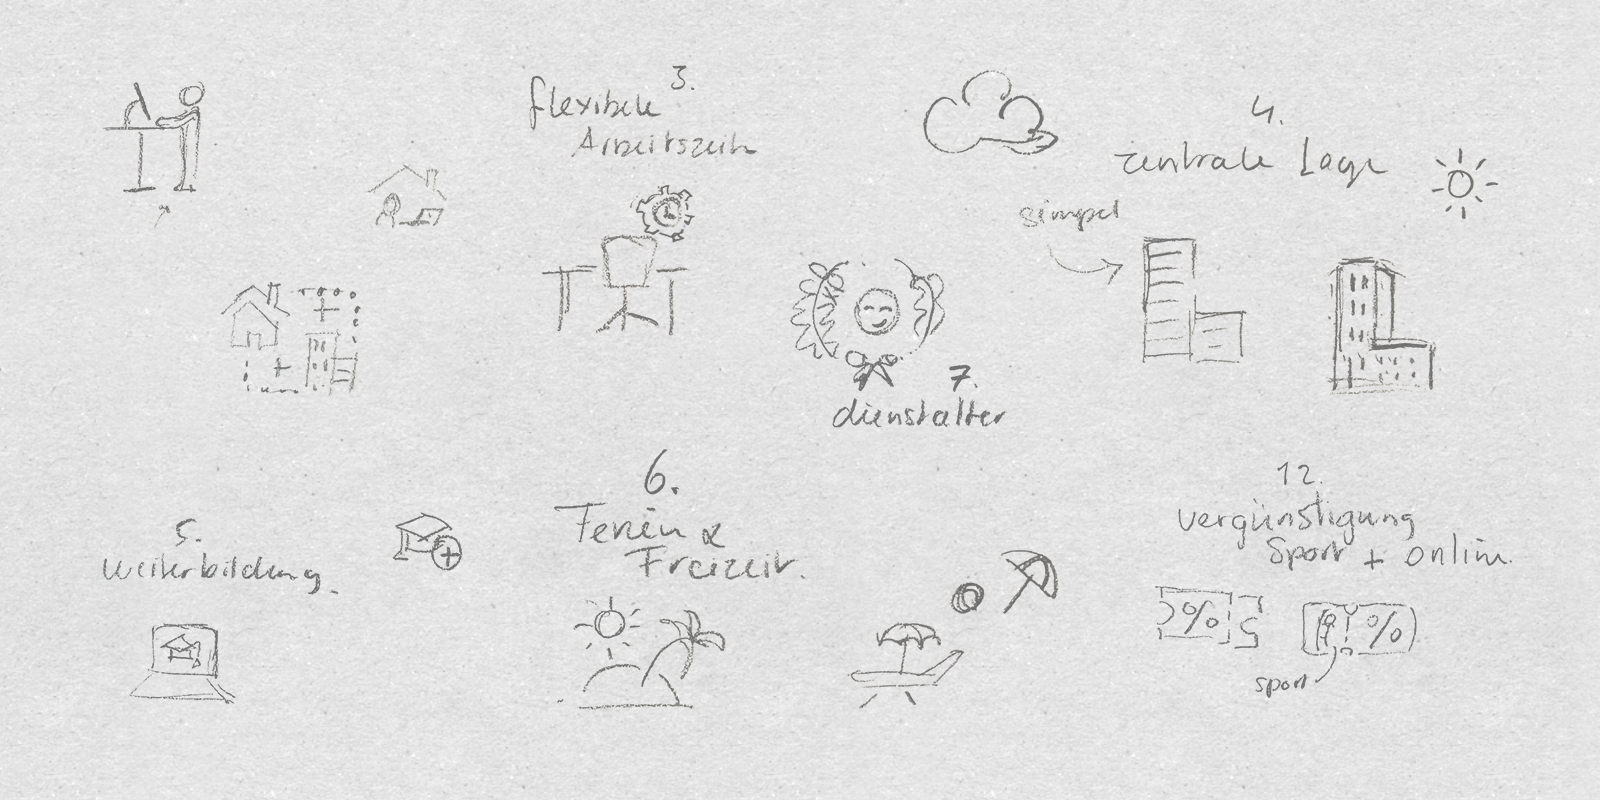 3.
flexible
Arbeitszeit
4.
zentrale Lage
simpel
7.
dienstalter
6.
Ferien &
Freizeit.
5.
weiterbildung.
12.
vergünstigung
Sport + online.
%
S
%
sport